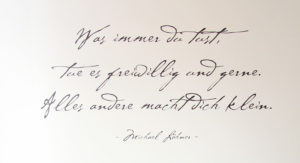 Was immer du tust,
tue es freiwillig und gerne.
Alles andere macht dich klein.
- Michael -